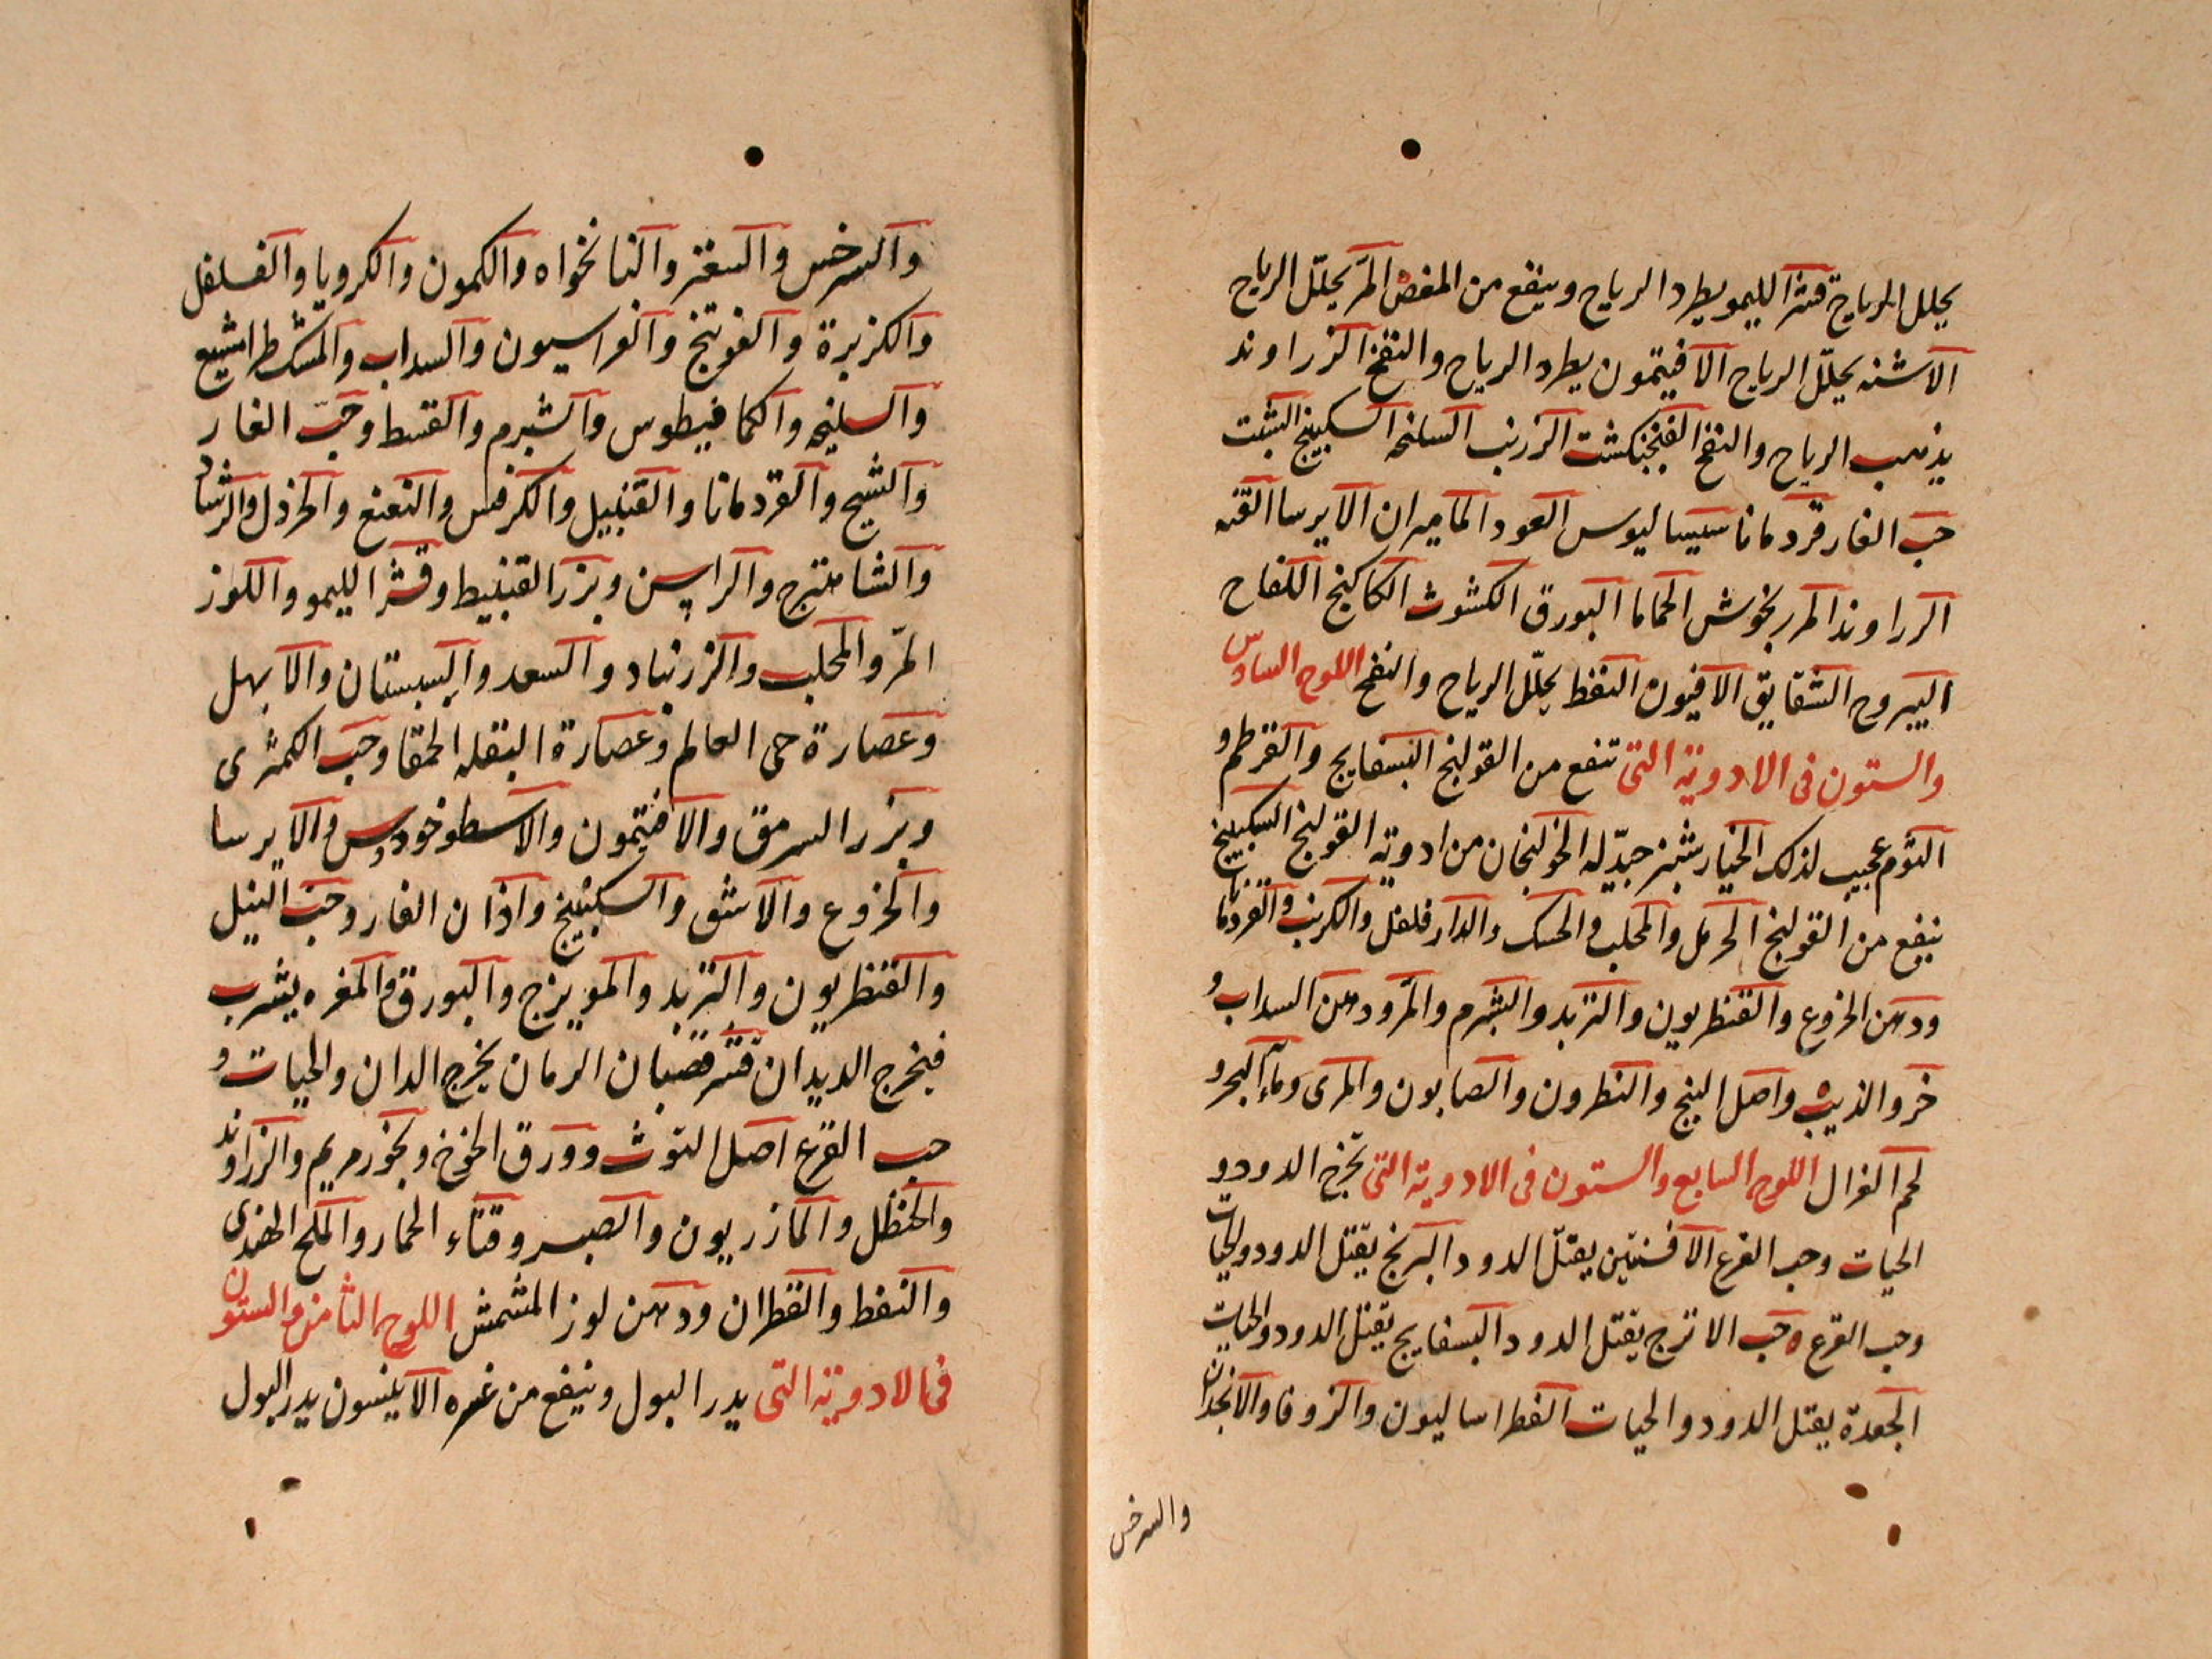 يحلل الرياح قشر الليمو يطرد الرياح وينفع من المغص المر يحلل الرياح
الاشنه يحلل الرياح الافيتمون يطرد الرياح والنفخ الزراوند
يذهب الرياح والنفخ الفنجنكشت الزرنب السلنخه السكبينج الشبت
حب الغار قردمانا سيساليوس العود الماميران الايرسا القنه
الرراوند المر بخوش الحماما البورق الكشوث الكاكنج اللفاح
اليبروح الشقايق الافيون النفط يحلل الرياح والنفخ اللوح السادس
والستون فى الادوية التى تنفع من القولنج البسفايج والقرطم و
الثوم عجيب لذلك الخيار شنبر جيد له الخولنجان من ادوية القولنج السكبينج
ينفع من القولنج الحرمل والمحلب والحسك والدار فلفل والكرنب والقردمانا
ودهن الخروع والقنطريون والتربد والشبرم والمر ودهن السداب و
خرو الذيب واصل البنج والنطرون والصابون والمرى وماء البحر و
لحم الغزال اللوح السابع والستون فى الادوية التى تخرج الدود و
الحيات وحب القرع الافسنتين يقتل الدود البرنج يقتل الدود والحيات
وحب القرع حب الاترج يقتل الدود البسفايج يقتل الدود والحيات
الجعدة يقتل الدود والحيات الفطراساليون والزوفا والانجدان
والسرخس
والسرخس والسعتر والنانخواه والكمون والكرويا والفلفل
والكزبرة والفوتنج والفراسيون والسداب والمشكطرامشيع
والسليخه والكمافيطوس والشبرم والقسط وحب الغار
والشيح والقردمانا والقنبيل والكرفس والنعنع والخردل والرشاد
والشاهترج والراسن وبزر القنبيط وقشر الليمو واللوز
المر والمحلب والزرنباد والسعد والسبستان والابهل
وعصارة حى العالم وعصارة البقله الحمقا وحب الكمثرى
وبزر السرمق والافيتمون والاسطوخودوس والايرسا
والخروع والاشق والسكبينج واذان الفار وحب النيل
والقنطريون والتربد والمويزج والبورق والمغره يشرب
فيخرج الديدان قشر قضبان الرمان يخرج الدان والحيات و
حب القرع اصل التوث وورق الخوخ وبخور مريم والزراوند
والحنظل والمازريون والصبر وقثاء الحمار والملح الهندى
والنفط والقطران ودهن لوز المشمش اللوح الثامن والستون
فى الادوية التى يدر البول وينفع من عسره الانيسون يدر البول